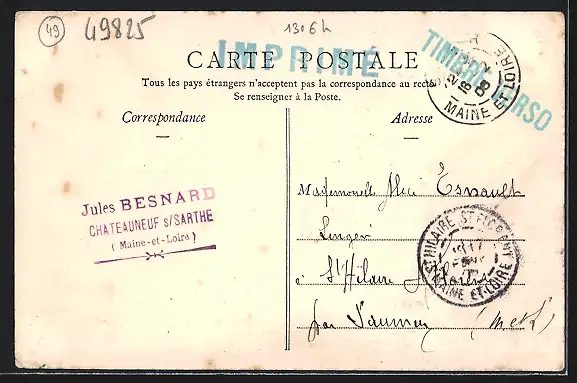 49
49825
1306h
IMPRIMÉ
TIMBRE VERSO
CARTE POSTALE
Tous les pays étrangers n'acceptent pas la correspondance au recto
Se renseigner à la Poste.
Correspondance
Adresse
MAINE ET LOIRE
08
Jules BESNARD
CHATEAUNEUF S/SARTHE
(Maine-et-Loire)
Mademoiselle Alice Esnault
Lingère
à St Hilaire St Florent
par Saumur (M et L)
ST HILAIRE ST FLORENT
MAINE ET LOIRE